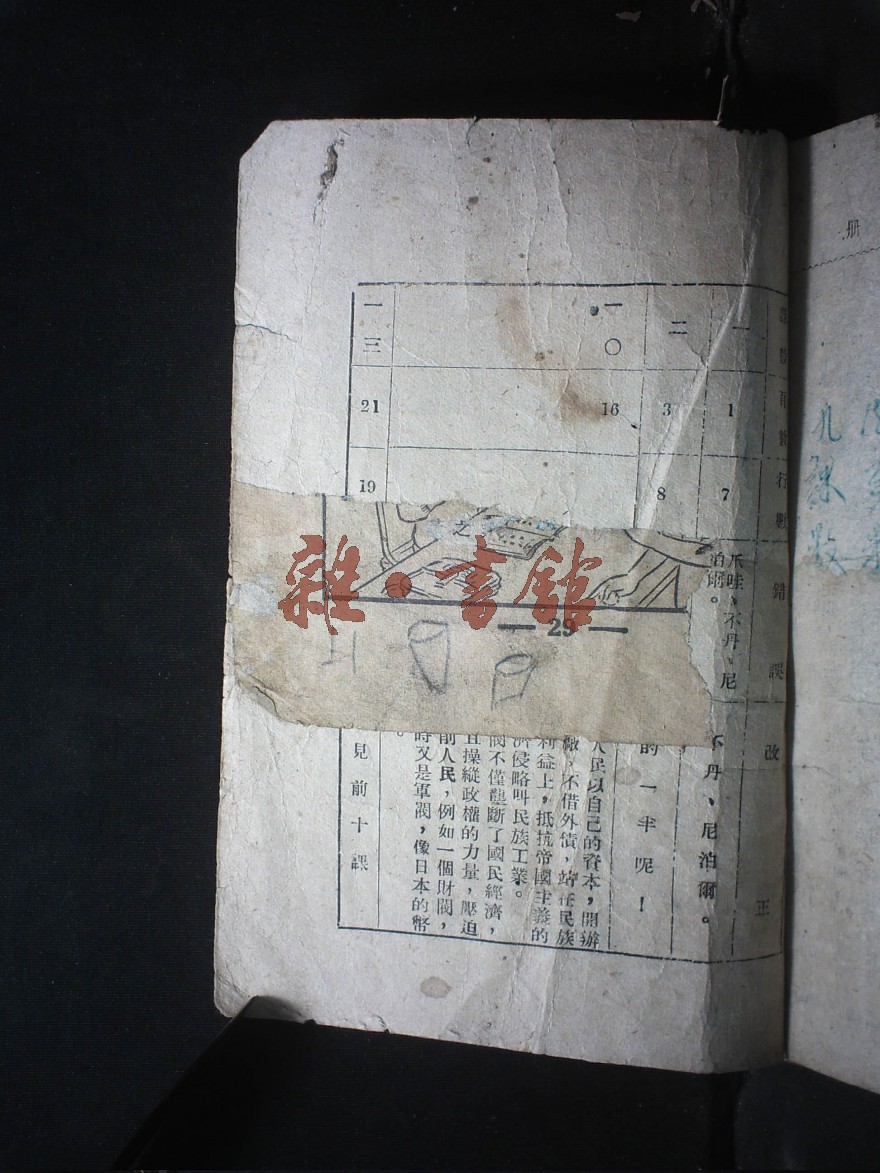 册
行數
錯誤
改正
一
1
7
不丹、尼
泊爾。
不丹、尼泊爾。
二
3
8
的一半呢！
一〇
16
人民以自己的資本，開辦
廠，不借外債，站在民族
利益上，抵抗帝國主義的
濟侵略叫民族工業。
閥不僅壟斷了國民經濟，
且操縱政權的力量，壓迫
前人民，例如一個財閥，
時又是軍閥，像日本的幣
一三
21
19
見前十課
之
— 29 —
雜·書館